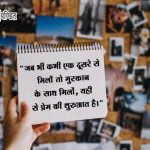 "जब भी कभी एक दूसरे से
मिलों तो मुस्कान
के साथ मिलों, वही
से प्रेम की शुरुआत है।"